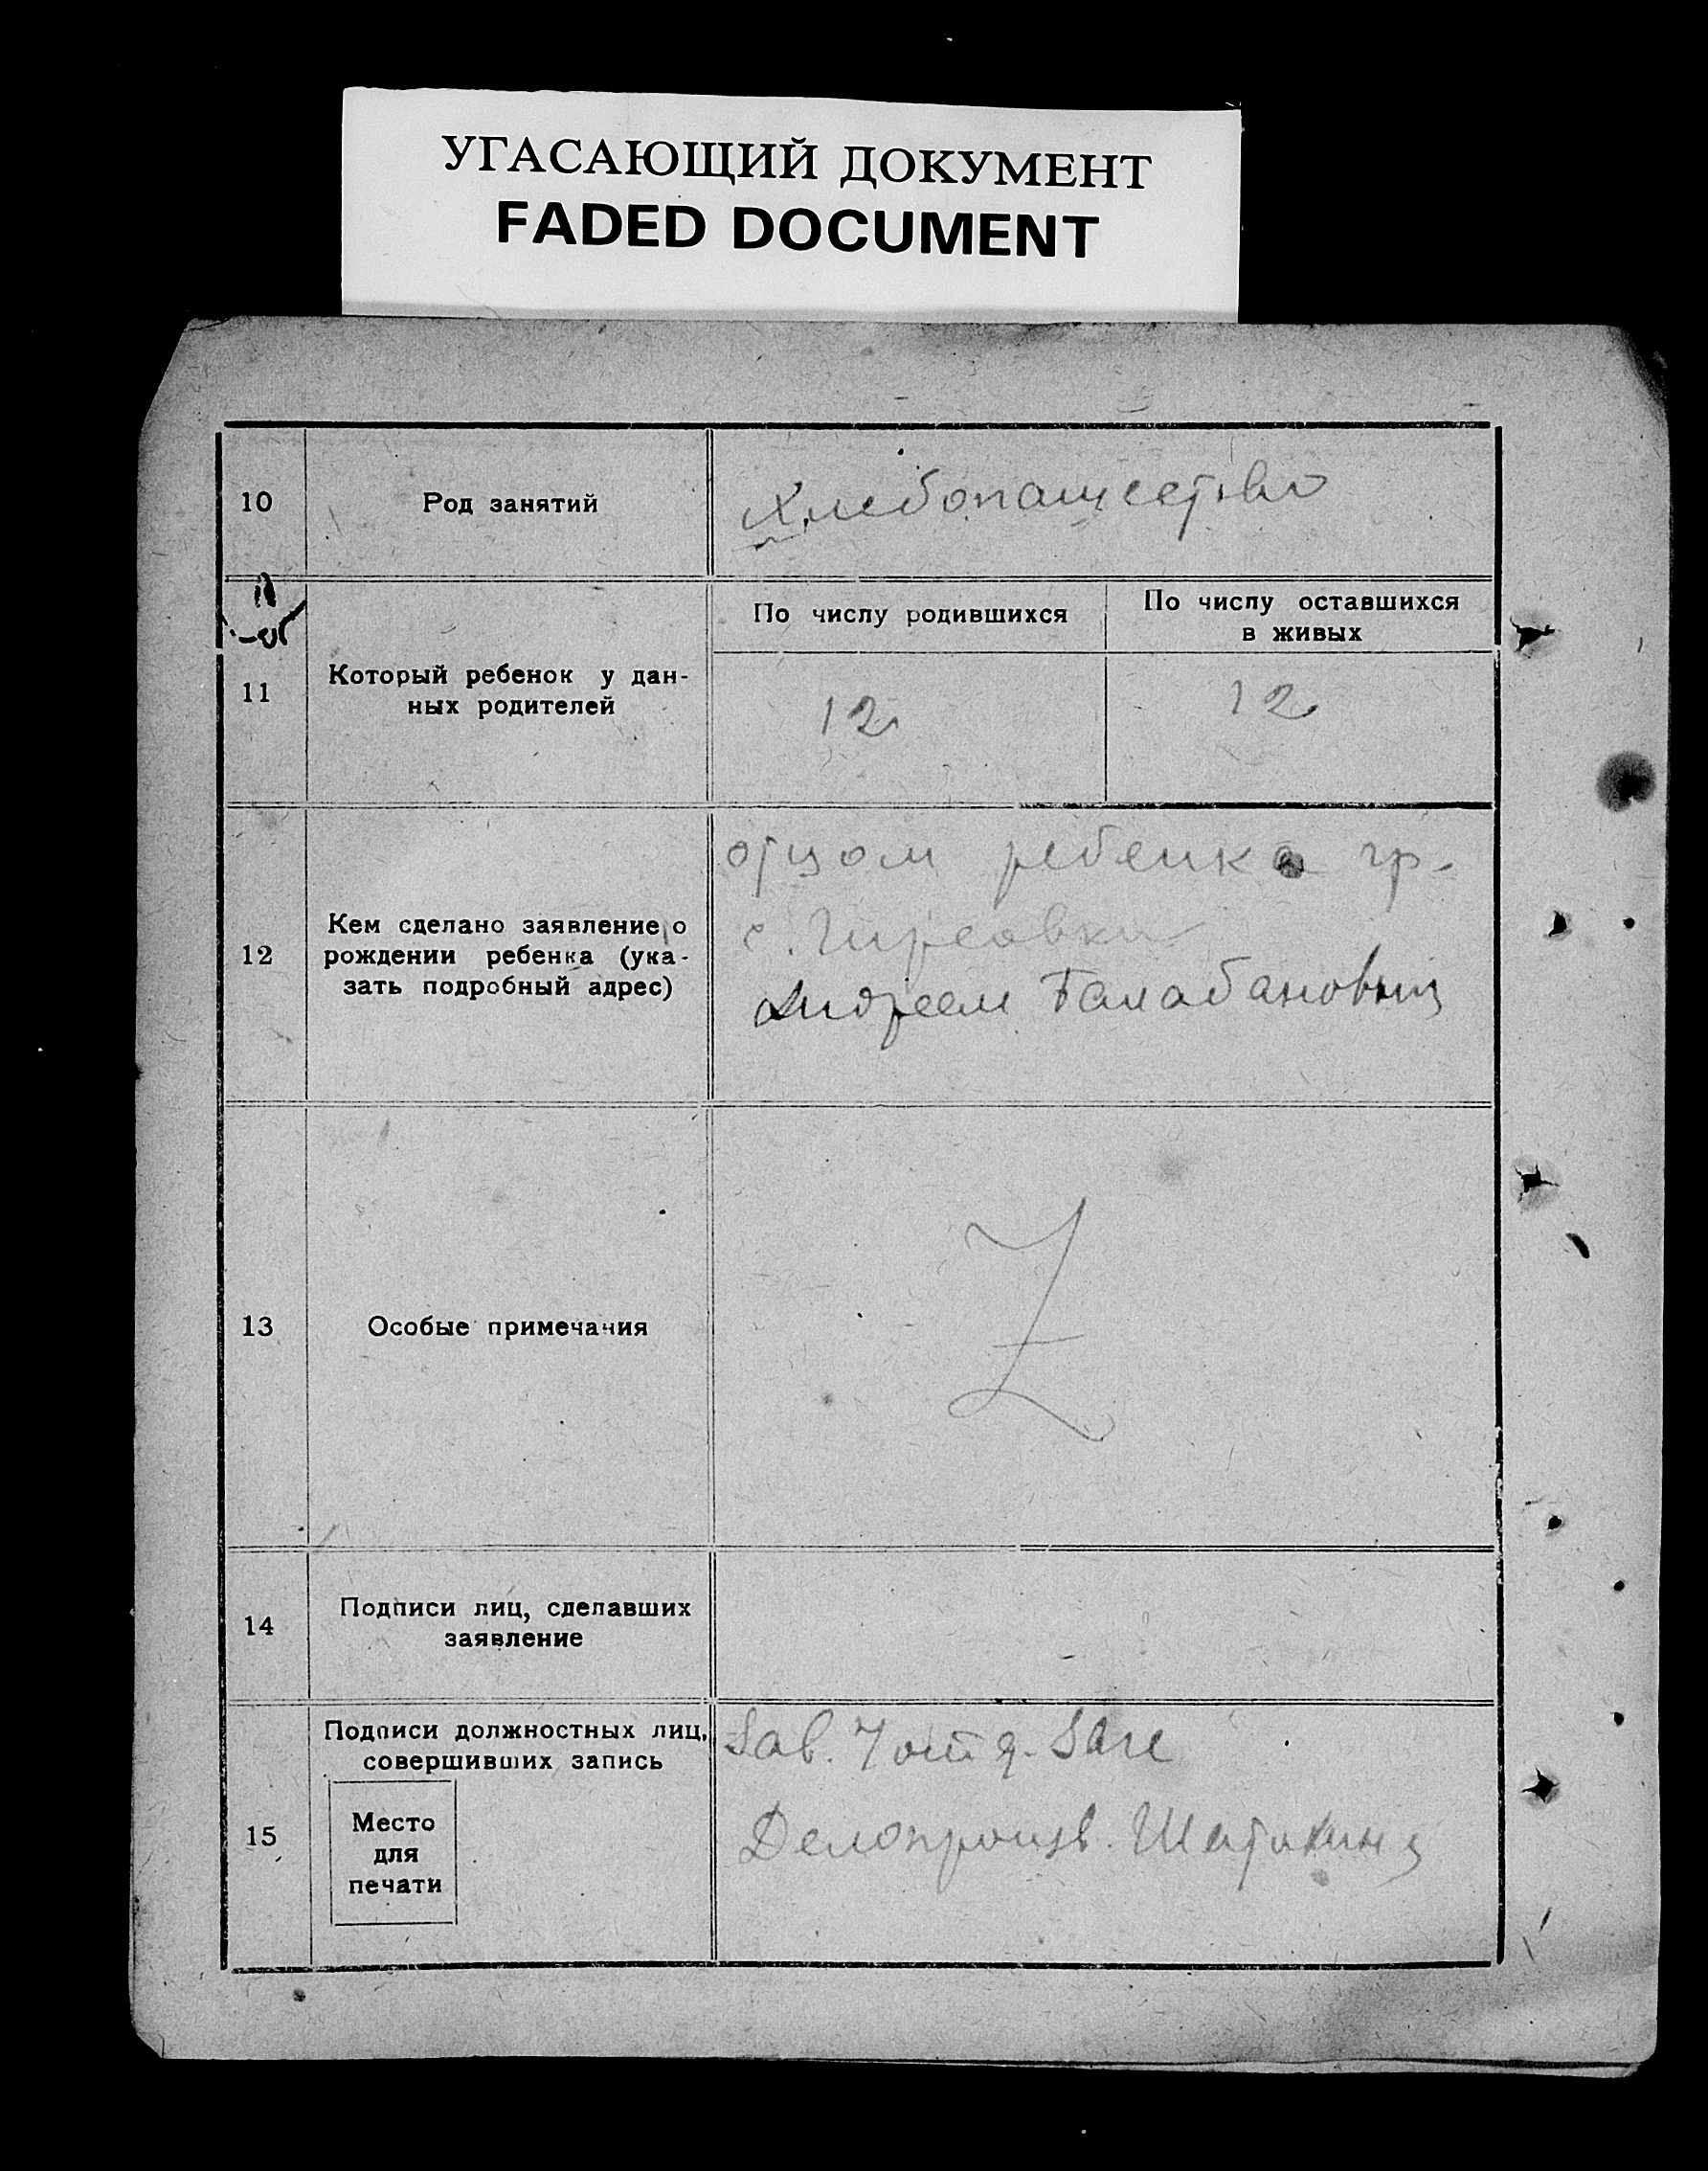 УГАСАЮЩИЙ ДОКУМЕНТ
FADED DOCUMENT
10
Род занятий
Хлебопашество
11
Который ребенок у дан-
ных родителей
По числу родившихся
По числу оставшихся
в живых
12
12
12
Кем сделано заявление о
рождении ребенка (ука-
зать подробный адрес)
отцом ребенка гр.
с. Гирсовки
Андреем Балабановым
13
Особые примечания
Z
14
Подписи лиц, сделавших
заявление
15
Подписи должностных лиц,
совершивших запись
Место
для
печати
Зав.
Делопроизв.